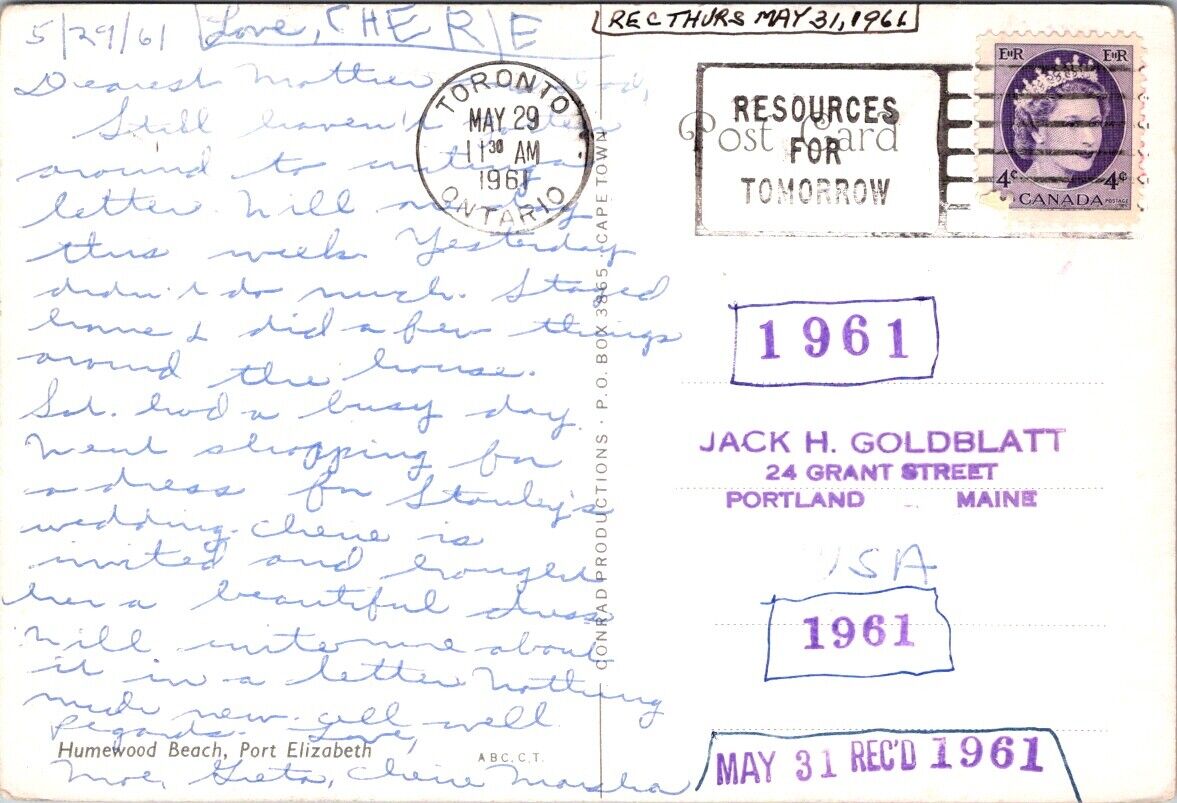 5/29/61 Love, CHERIE
Dearest Mother and Dad,
Still haven't gotten
around to writing a
letter. Will
this week. Yesterday
didn't do much. Stayed
home & did a few things
around the house.
Sat. had a busy day.
Went shopping for
a dress for Stanley's
wedding. Cherie is
invited and bought
her a beautiful dress
Will write more about
it in a letter. Nothing
much new. All well
Regards. Love,
Moe, Greta, Cherie Marsha
Humewood Beach, Port Elizabeth
A.B.C.C.T.
CONRAD PRODUCTIONS · P.O. BOX 3865 · CAPE TOWN
REC THURS MAY 31, 1961
TORONTO
MAY 29
11 30 AM
1961
ONTARIO
Post Card
RESOURCES
FOR
TOMORROW
EIIR EIIR
4¢ 4¢
CANADA
POSTAGE
1961
JACK H. GOLDBLATT
24 GRANT STREET
PORTLAND MAINE
USA
1961
MAY 31 REC'D 1961